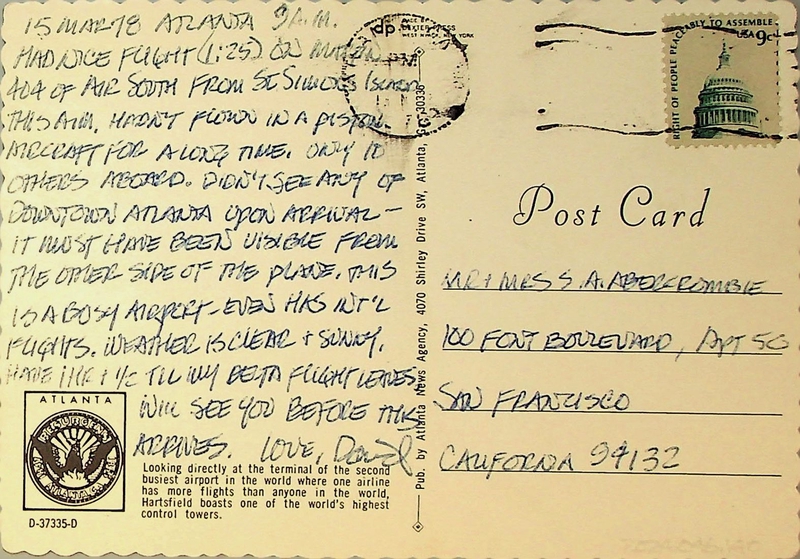 15 MAR 78 ATLANTA 9 A.M.
HAD NICE FLIGHT (1:25) ON MARTIN
404 OF AIR SOUTH FROM ST. SIMONS ISLAND
THIS A.M. HADN'T FLOWN IN A PISTON
AIRCRAFT FOR A LONG TIME. ONLY 10
OTHERS ABOARD. DIDN'T SEE ANY OF
DOWNTOWN ATLANTA UPON ARRIVAL -
IT MUST HAVE BEEN VISIBLE FROM
THE OTHER SIDE OF THE PLANE. THIS
IS A BUSY AIRPORT - EVEN HAS INT'L
FLIGHTS. WEATHER IS CLEAR + SUNNY.
HAVE 1 HR + 1/2 TIL MY DELTA FLIGHT LEAVES.
WILL SEE YOU BEFORE THIS
ARRIVES. LOVE, David
ATLANTA
RESURGENS
ATLANTA, GA.
Looking directly at the terminal of the second
busiest airport in the world where one airline
has more flights than anyone in the world,
Hartsfield boasts one of the world's highest
control towers.
D-37335-D
dp
DEXTER PRESS
WEST NYACK, NEW YORK
PM
Pub. by Atlanta News Agency, 4070 Shirley Drive SW, Atlanta, GA 30336
RIGHT OF PEOPLE PEACEABLY TO ASSEMBLE
USA 9c
Post Card
MR + MRS S. A. ABERCROMBIE
100 FONT BOULEVARD, APT 5G
SAN FRANCISCO
CALIFORNIA 94132